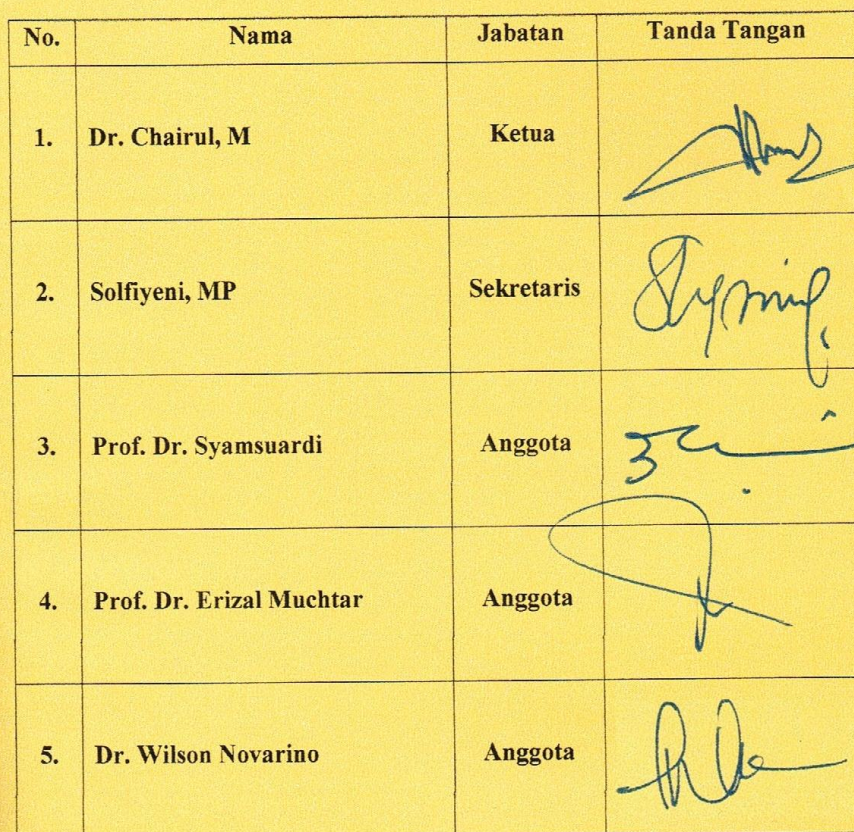 No. Nama Jabatan Tanda Tangan
1. Dr. Chairul, M Ketua
2. Solfiyeni, MP Sekretaris
3. Prof. Dr. Syamsuardi Anggota
4. Prof. Dr. Erizal Muchtar Anggota
5. Dr. Wilson Novarino Anggota